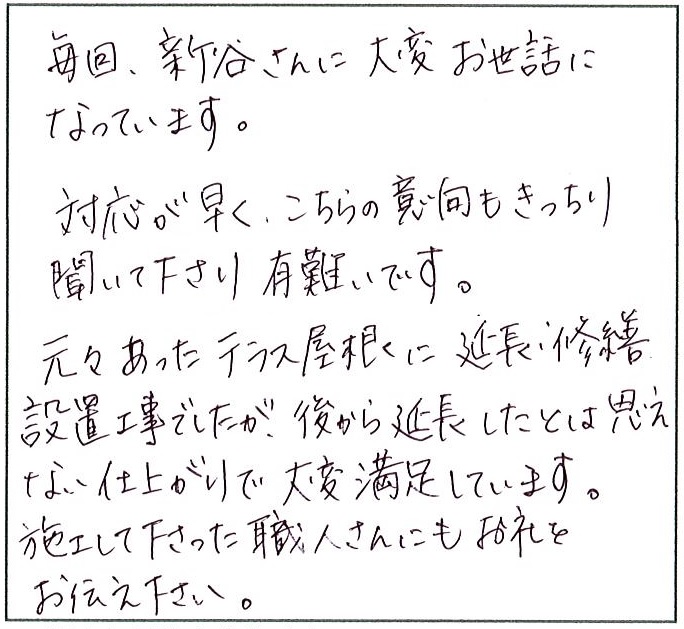 毎回、新谷さんに大変お世話に
なっています。
対応が早く、こちらの意向もきっちり
聞いて下さり有難いです。
元々あったテラス屋根に延長・修繕
設置工事でしたが、後から延長したとは思え
ない仕上がりで大変満足しています。
施工して下さった職人さんにもお礼を
お伝え下さい。